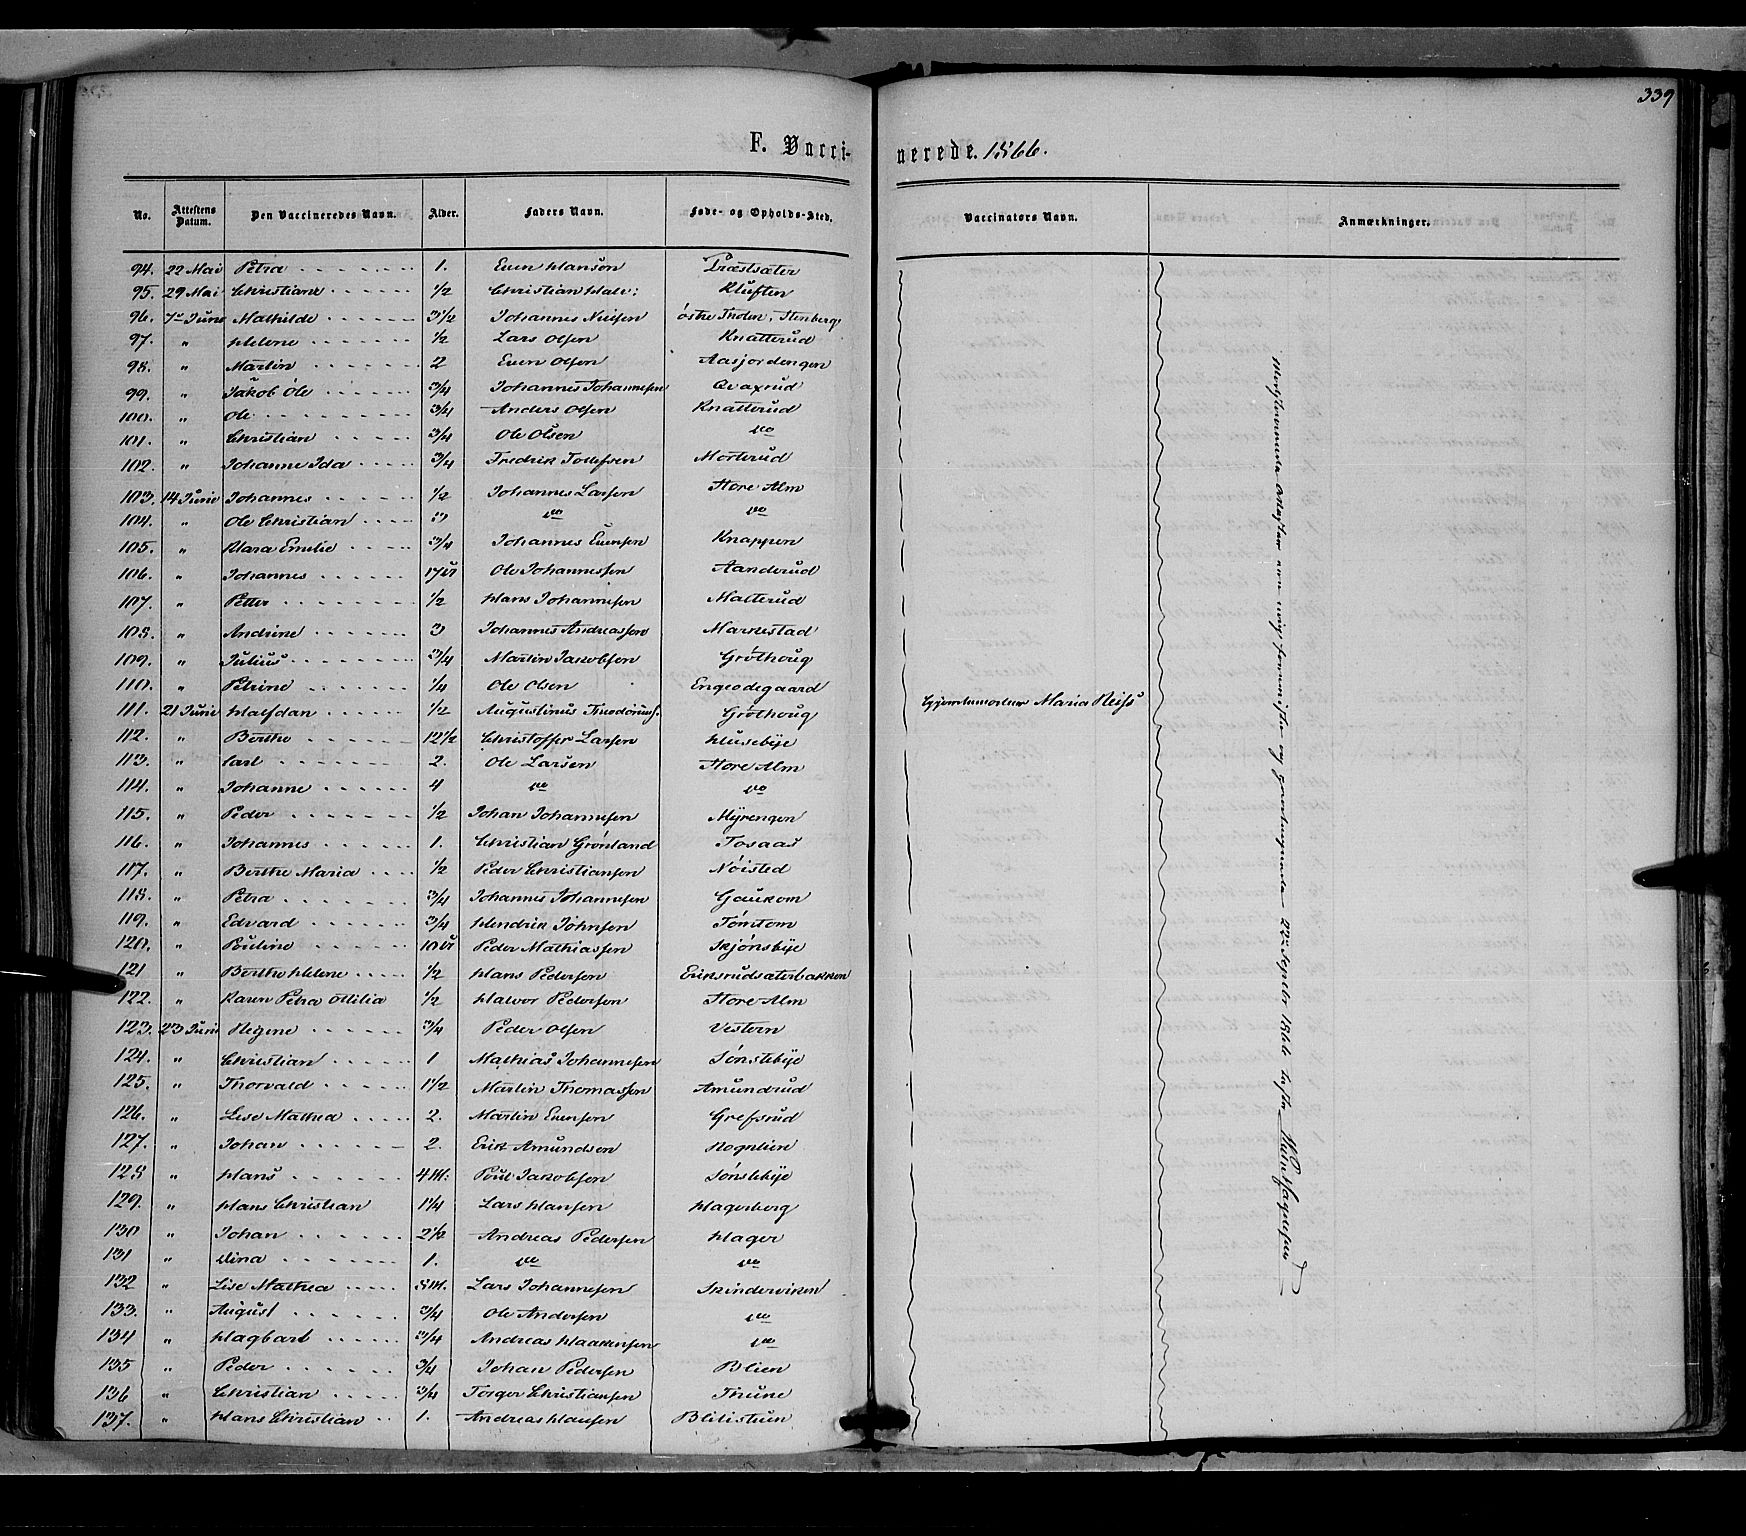 339
F. Vacci-
nerede. 1866.
No. Attestens Datum. Den Vaccineredes Navn. Alder. Faders Navn. Føde- og Opholds-Sted. Vaccinators Navn. Anmærkninger.
94. 22 Mai Petra 1. Even Hansen Præstsæter
95. 29 Mai Christiane 1/2 Christian Halv: Kluften
96. 7de Juni Mathilde 3 1/2 Johannes Nielsen østre Thoten, Stenberg
97. " Helene 1/2 Lars Olsen Knatterud
98. " Martin 2 Even Olsen Aasjordengen
99. " Jakob Ole 3/4 Johannes Johannesen Qvaxrud
100. " Ole 3/4 Anders Olsen Knatterud
101. " Christian 3/4 Ole Olsen do
102. " Johanne Ida 3/4 Fredrik Tollefsen Morterud
103. 14 Juni Johannes 1/2 Johannes Larsen Store Alm
104. " Ole Christian 3 do do
105. " Klara Emilie 3/4 Johannes Evensen Knappen
106. " Johannes 17 U Ole Johannessen Aanderud
107. " Petter 1/2 Hans Johannesen Malterud
108. " Andrine 3 Johannes Andreassen Markestad
109. " Julius 3/4 Martin Jakobsen Grøthoug
110. " Petrine 1/4 Ole Olsen Engeodegaard
111. 21 Juni Halfdan 1/2 Augustinus Theodorius. Grøthoug Gjordemoder Maria Reiss
112. " Berthe 12 1/2 Christoffer Larsen Husebye
113. " Carl 2. Ole Larsen Store Alm
114. " Johanne 4 do do
115. " Peder 1/2 Johan Johannesen Myrengen
116. " Johannes 1. Christian Grønland Tosaas
117. " Berthe Maria 1/2 Peder Christiansen Nøisted
118. " Petra 3/4 Johannes Johannesen Gaukom
119. " Edvard 3/4 Hendrik Johnsen Tømtom
120. " Pouline 10 U Peder Mathiassen Skjønsbye
121 " Berthe Helene 1/2 Hans Pedersen Eriksrudsæterbakken
122. " Karen Petra Ottilia 1/2 Halvor Pedersen Store Alm
123. 23 Juni Regine 3/4 Peder Olsen Vestern
124. " Christian 1 Mathias Johannesen Sønstebye
125. " Thorvald 1 1/2 Martin Thomassen Amundrud
126. " Lise Mathea 2. Martin Evensen Grefsrud
127. " Johan 2. Erik Amundsen Rognlien
128 " Hans 4 M: Poul Jakobsen Sønstebye
129. " Hans Christian 1 1/4 Lars Hansen Hagerberg
130 " Johan 2 1/2 Andreas Pedersen Hager
131 " Dina 1. do do
132 " Lise Mathea 8 M. Lars Johannesen Skinderviken
133. " August 3/4 Ole Andersen do
134 " Hagbart 3/4 Andreas Haakensen do
135 " Peder 3/4 Johan Pedersen Blien
136 " Christian 3/4 Torger Christiansen Thune
137. " Hans Christian 1. Andreas Hansen Blilistuen